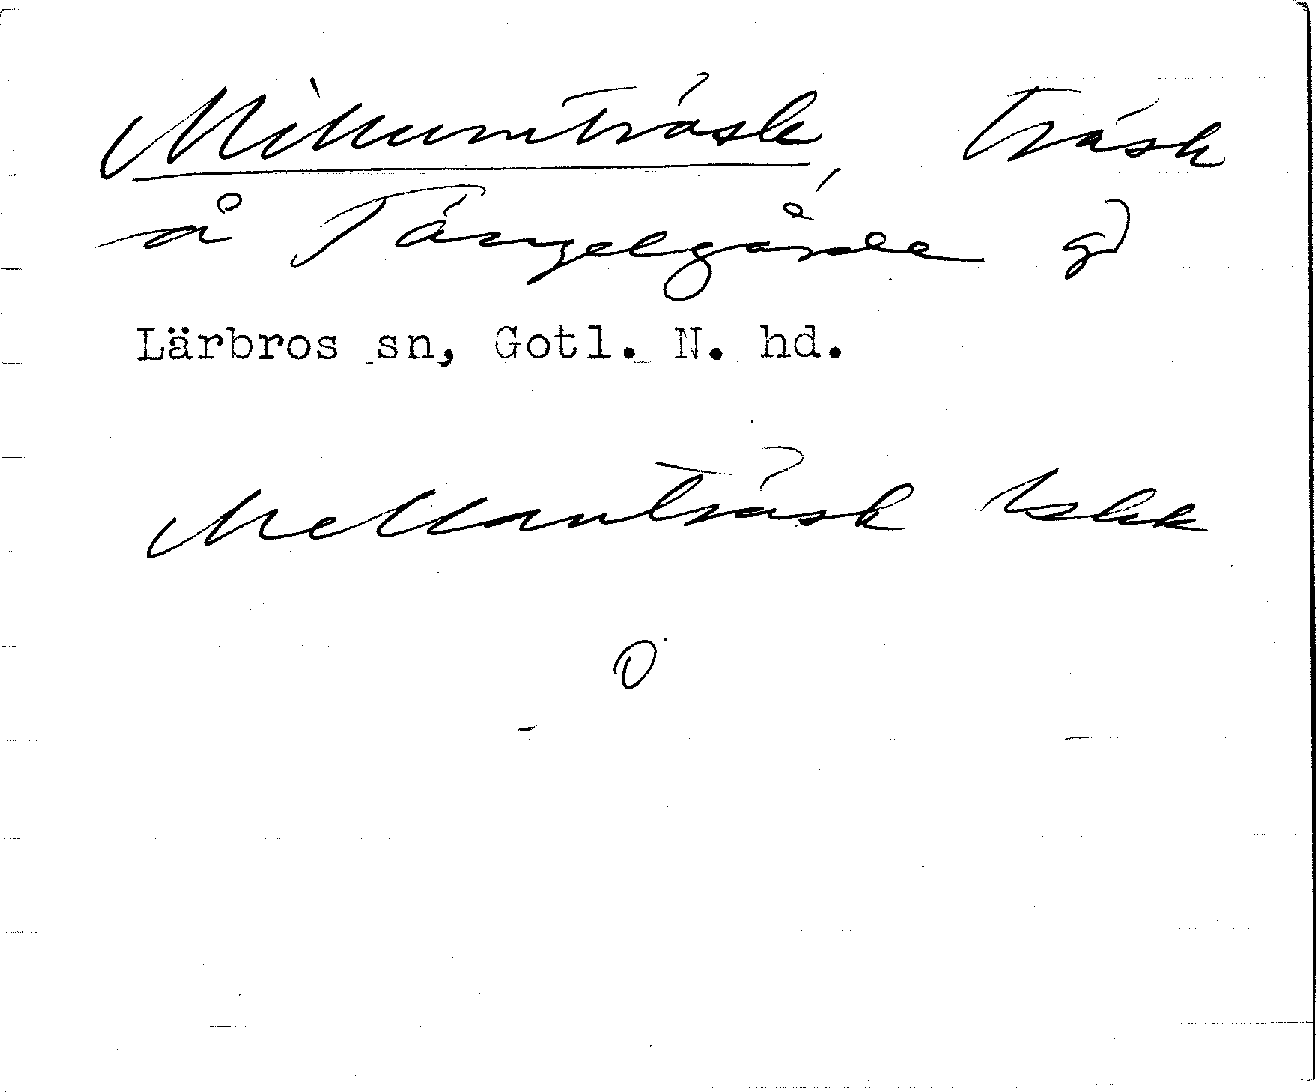 Millumträsk, träsk
å Tängelgårda gd
Lärbros sn, Gotl. N. hd.
Mellanträsk
0